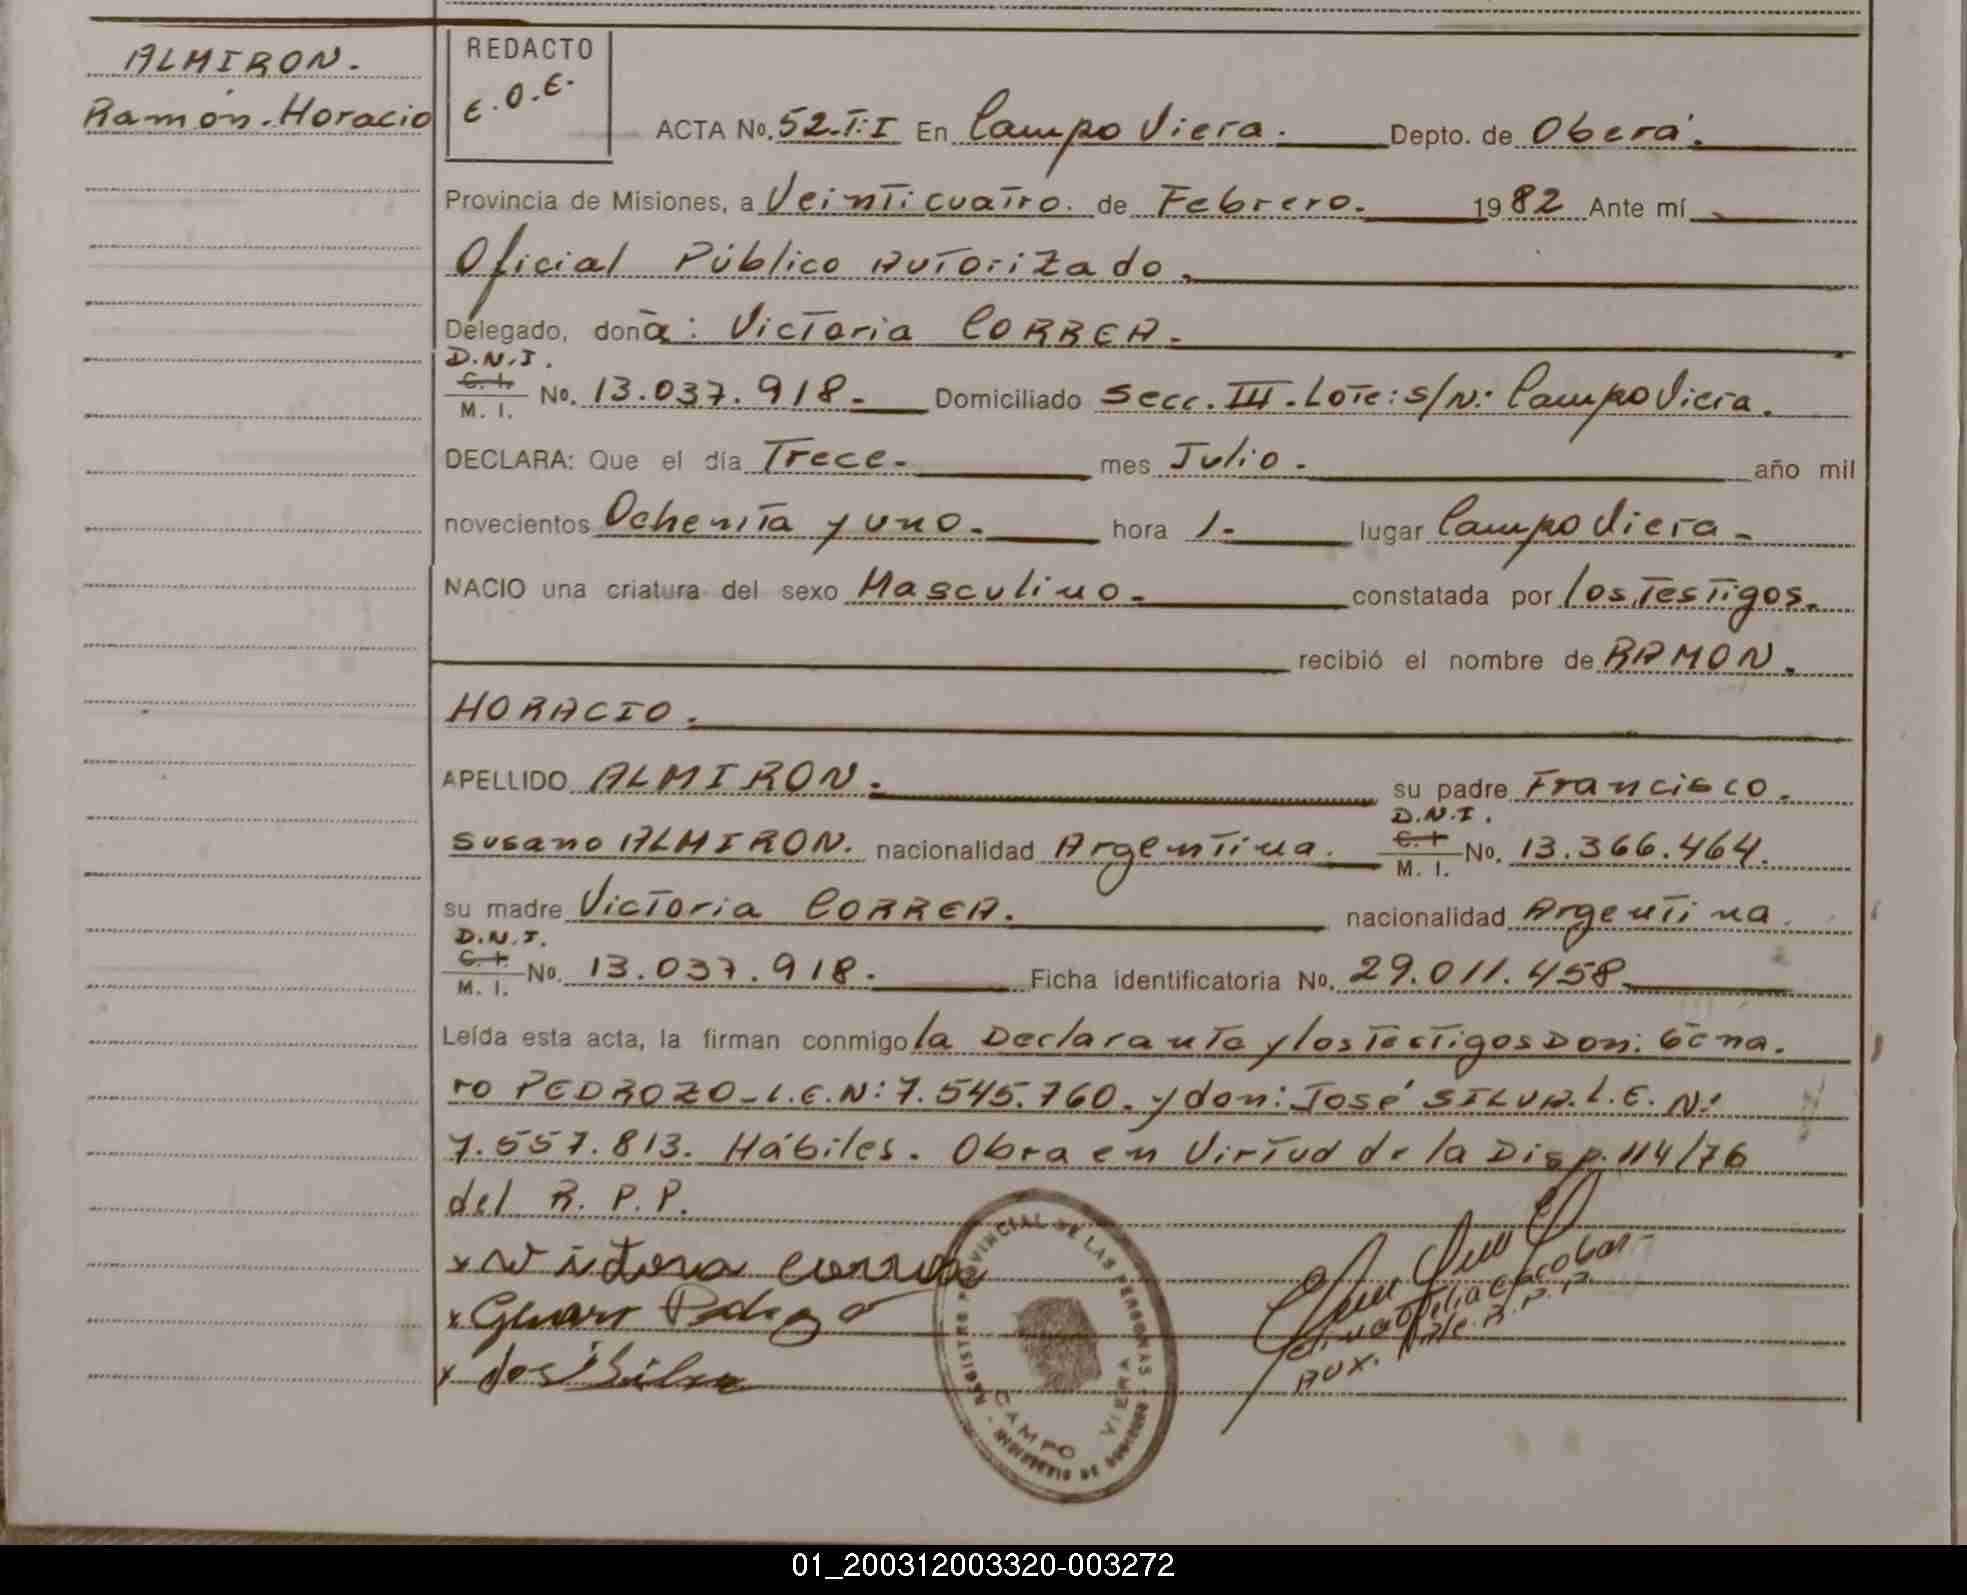 ALMIRON.
Ramón. Horacio
REDACTO
E.O.E.
ACTA No. 52.T:I En Campo Viera. Depto. de Oberá.
Provincia de Misiones, a Veinticuatro. de Febrero. 1982 Ante mí
Oficial Público Autorizado.
Delegado, donã: Victoria CORREA.
D.N.I.
C. I.
M. I. No. 13.037.918. Domiciliado Secc. III. Lote: s/N: Campo Viera.
DECLARA: Que el día Trece. mes Julio. año mil
novecientos Ochenta y uno. hora 1. lugar Campo Viera.
NACIO una criatura del sexo Masculino. constatada por los Testigos.
recibió el nombre de RAMON.
HORACIO.
APELLIDO ALMIRON. su padre Francisco.
D.N.I.
Susano ALMIRON. nacionalidad Argentina. C. I. M. I. No. 13.366.464.
su madre Victoria CORREA. nacionalidad Argentina.
D.N.I.
C. I.
M. I. No. 13.037.918. Ficha identificatoria No. 29.011.458
Leída esta acta, la firman conmigo la Declarante y los Testigos Don: Gena.
ro PEDROZO. L.E.N: 7.545.760. y don: José SILVA. L.E. N:
7.557.813. Hábiles. Obra en Virtud de la Disp. 114/76
del R. P. P.
x Victora correa
x José Silva
REGISTRO PROVINCIAL DE LAS PERSONAS
CAMPO VIERA
Aux. R.P.P.
01_200312003320-003272